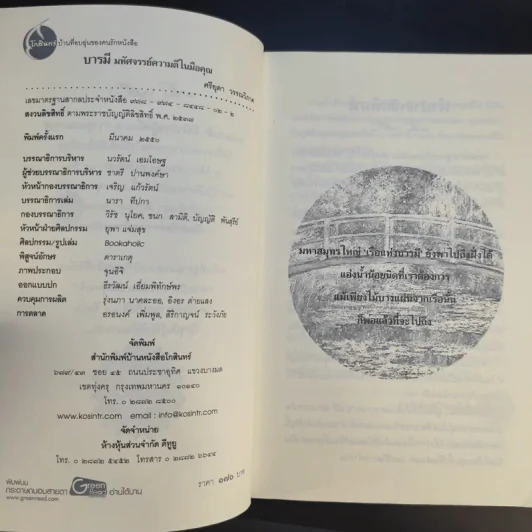 โกสินทร์ บ้านที่อบอุ่นของคนรักหนังสือ
บารมี มหัศจรรย์ความดีในมือคุณ
ศรียุดา วรรณวิภาต
เลขมาตรฐานสากลประจำหนังสือ ๙๗๘ - ๙๗๔ - ๘๔๔๘ - ๐๒ - ๒
สงวนลิขสิทธิ์ ตามพระราชบัญญัติลิขสิทธิ์ พ.ศ. ๒๕๓๗
พิมพ์ครั้งแรก มีนาคม ๒๕๕๐
บรรณาธิการบริหาร นวรัตน์ เอมโอษฐ
ผู้ช่วยบรรณาธิการบริหาร ชาตรี ปานพงศ์ษา
หัวหน้ากองบรรณาธิการ เจริญ แก้วรัตน์
บรรณาธิการเล่ม นารา ทีปกา
กองบรรณาธิการ วิรัช นุโยค, ชนก สามิตี, บัญญัติ พันสุรีย์
หัวหน้าฝ่ายศิลปกรรม ยุพา แจ่มสุข
ศิลปกรรม/รูปเล่ม Bookaholic
พิสูจน์อักษร ดาราเกตุ
ภาพประกอบ จุนอิจิ
ออกแบบปก ธีรวัฒน์ เอี่ยมพิทักษ์พร
ควบคุมการผลิต รุ่งนภา นาคลออ, อังอร ค่ายแสง
การตลาด อรอนงค์ เพิ่มพูล, สิริกาญจน์ ระวังภัย
จัดพิมพ์
สำนักพิมพ์บ้านหนังสือโกสินทร์
๖๙๙/๔๓ ซอย ๔๕ ถนนประชาอุทิศ แขวงบางมด
เขตทุ่งครุ กรุงเทพมหานคร ๑๐๑๔๐
โทร. ๐ ๒๘๗๒ ๘๕๐๐
www.kosintr.com email : info@kosintr.com
จัดจำหน่าย
ห้างหุ้นส่วนจำกัด ดีทูยู
โทร. ๐ ๒๘๗๒ ๕๔๕๒ โทรสาร ๐ ๒๘๗๒ ๖๖๔๔
ราคา ๑๗๖ บาท
พิมพ์บน
กระดาษถนอมสายตา Green Read อ่านได้นาน
www.greenread.com
มหาสมุทรใหญ่ 'เรือแห่งบารมี' ยังพาไปถึงฝั่งได้
แอ่งน้ำน้อยนิดที่เราต้องการ
แม้เพียงไม้บางแผ่นจากเรือนั้น
ก็พอแล้วที่จะไปถึง